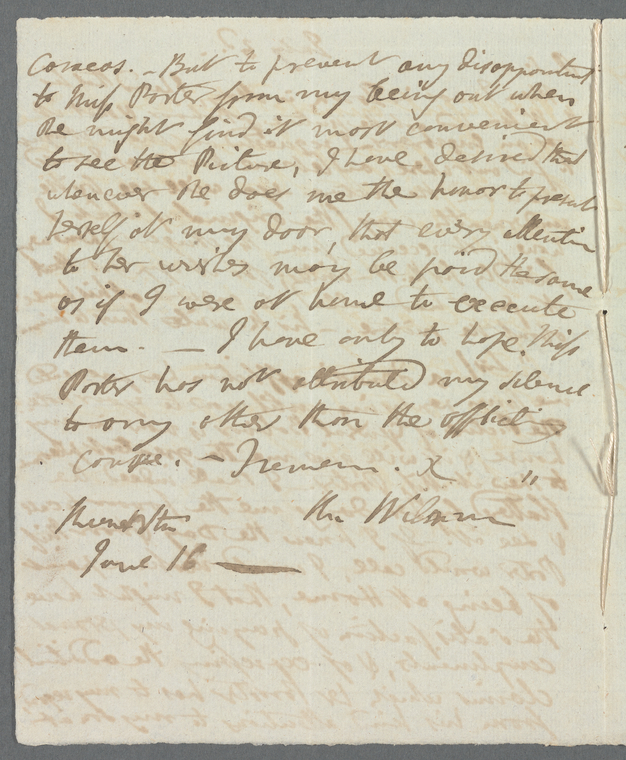 But to prevent any disappointmt
to Miss Porter from my being out when
she might find it most convenient
to see the Picture, I have desired that
whenever she does me the honor to present
herself at my door, that every attention
to her wishes may be paid the same
as if I were at home to execute
them. — I have only to hope Miss
Porter has not attributed my silence
to any other than the afflicting
cause. —
Tho Wilson
June 16 —